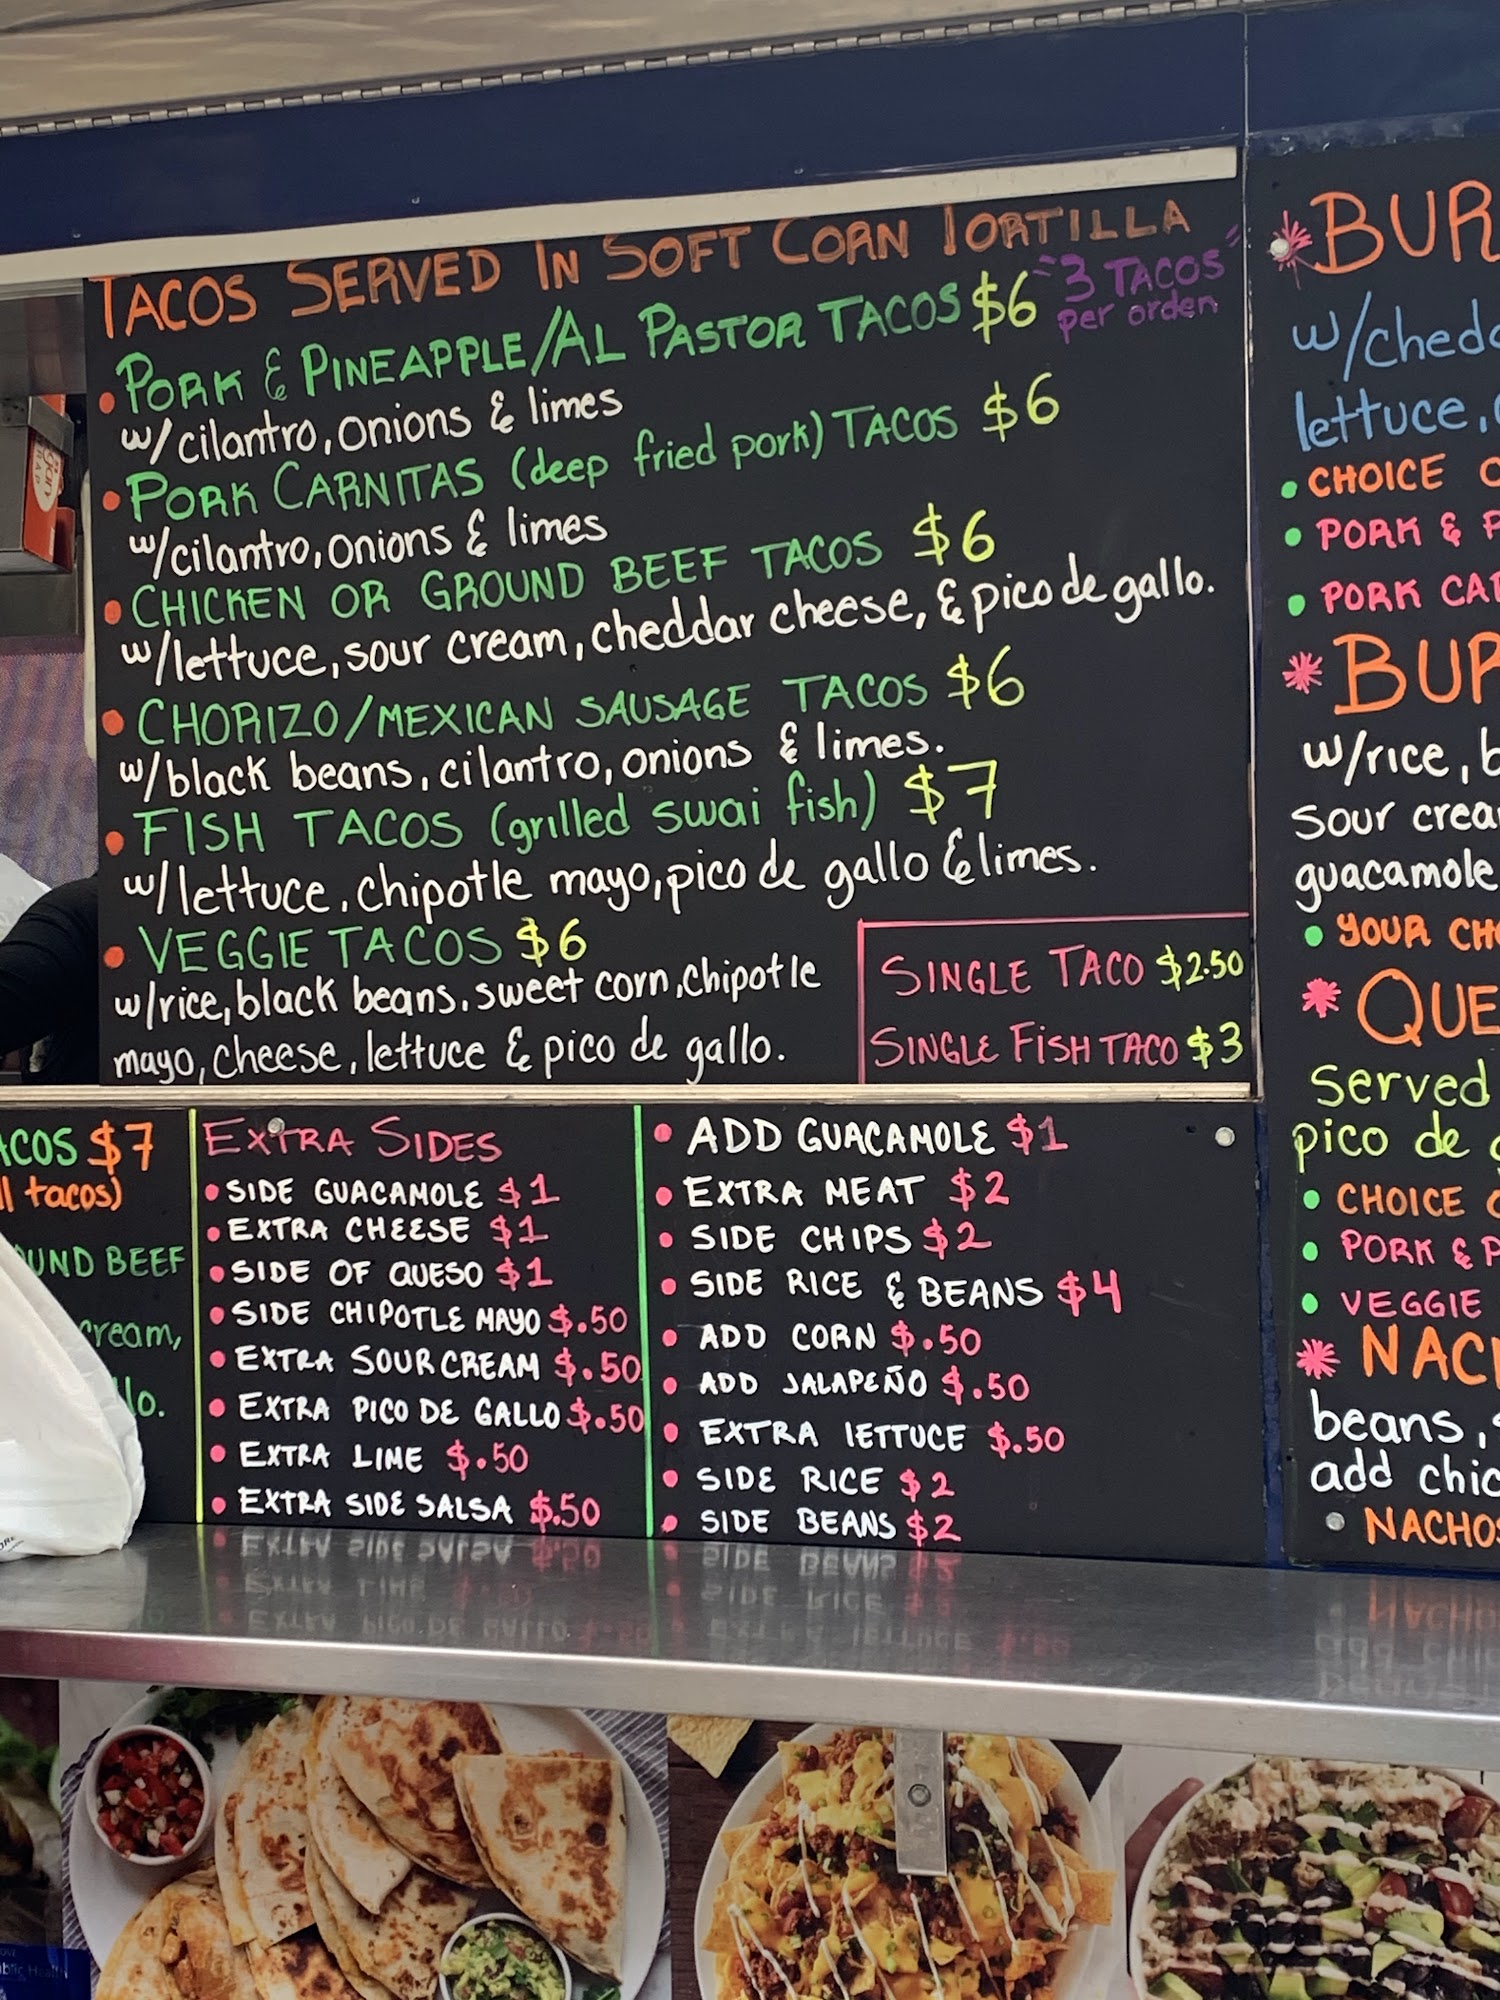 TACOS SERVED IN SOFT CORN TORTILLA
• PORK & PINEAPPLE/AL PASTOR TACOS $6 "3 TACOS per orden"
w/cilantro, onions & limes
• PORK CARNITAS (deep fried pork) TACOS $6
w/cilantro, onions & limes
• CHICKEN OR GROUND BEEF TACOS $6
w/lettuce, sour cream, cheddar cheese, & pico de gallo.
• CHORIZO/MEXICAN SAUSAGE TACOS $6
w/black beans, cilantro, onions & limes.
• FISH TACOS (grilled swai fish) $7
w/lettuce, chipotle mayo, pico de gallo & limes.
• VEGGIE TACOS $6
w/rice, black beans, sweet corn, chipotle
mayo, cheese, lettuce & pico de gallo.
SINGLE TACO $2.50
SINGLE FISH TACO $3
ACOS $7
ll tacos)
UND BEEF
cream,
lo.
EXTRA SIDES
• SIDE GUACAMOLE $1
• EXTRA CHEESE $1
• SIDE OF QUESO $1
• SIDE CHIPOTLE MAYO $.50
• EXTRA SOUR CREAM $.50
• EXTRA PICO DE GALLO $.50
• EXTRA LIME $.50
• EXTRA SIDE SALSA $.50
• ADD GUACAMOLE $1
• EXTRA MEAT $2
• SIDE CHIPS $2
• SIDE RICE & BEANS $4
• ADD CORN $.50
• ADD JALAPEÑO $.50
• EXTRA LETTUCE $.50
• SIDE RICE $2
• SIDE BEANS $2
* BUR
w/chedd
lettuce,
• CHOICE O
• PORK & P
• PORK CAR
* BUR
w/rice, b
sour crea
guacamole
• YOUR CHO
* QUE
Served
pico de g
• CHOICE O
• PORK & P
• VEGGIE
* NACH
beans, s
add chic
NACHOS